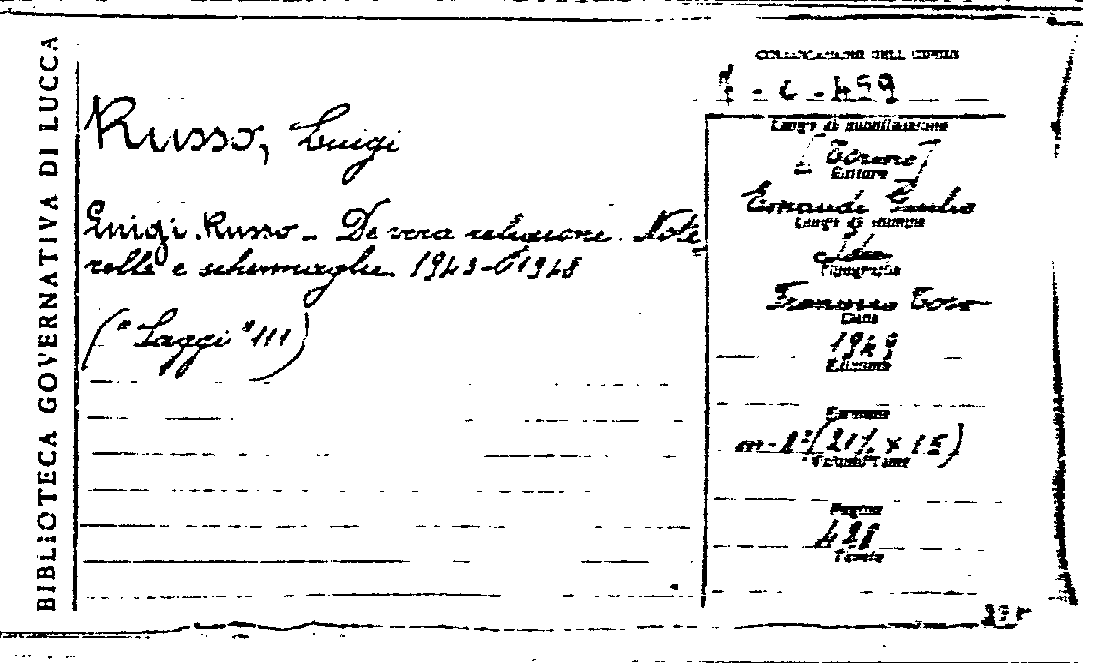 BIBLIOTECA GOVERNATIVA DI LUCCA
Russo, Luigi
Luigi Russo - De vera religione. Note
relle e schermaglie 1943-1948
("Saggi" III)
COLLOCAZIONE DELL'OPERA
- C - 459
Luogo di pubblicazione
[Torino]
Editore
Einaudi Giulio
Luogo di stampa
Idem
Tipografia
Francesco Toso
Data
1949
Edizione
Formato
m-8° (21½ x 15)
Volumi Tomi
Pagine
Tavole